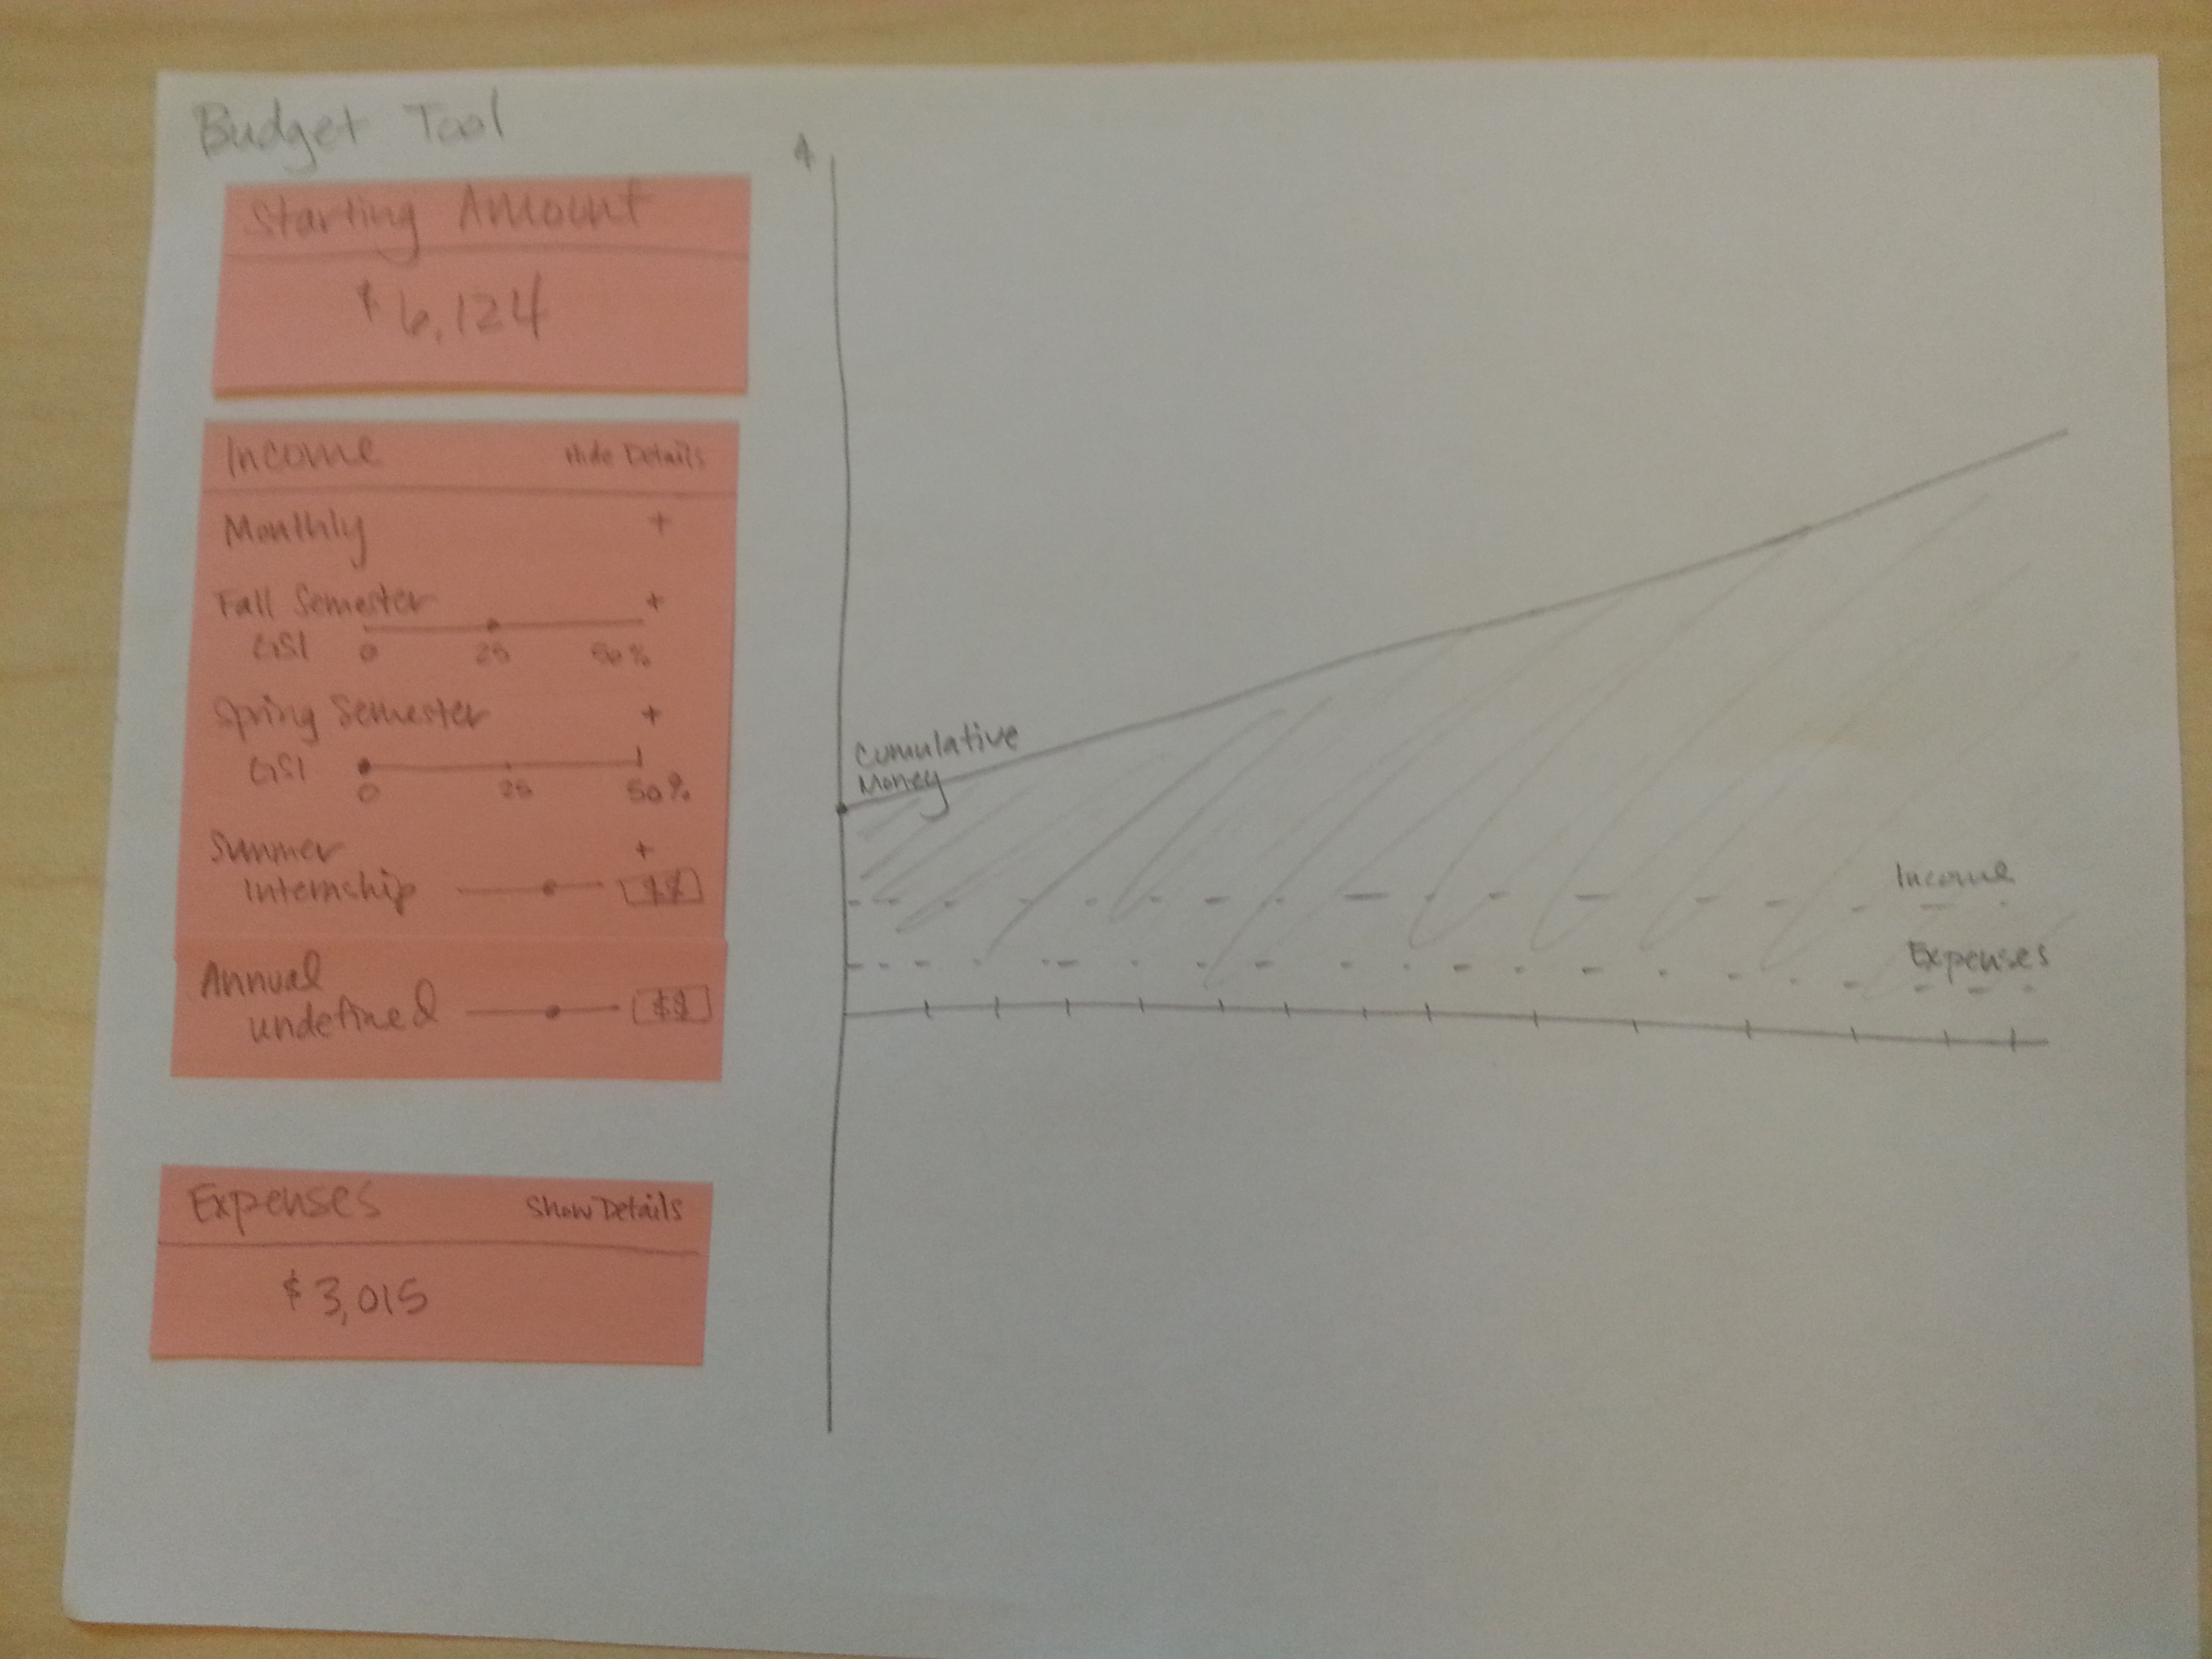 Budget Tool
Starting Amount
$6,124
Income Hide Details
Monthly +
Fall Semester +
GSI 0 25 50%
Spring Semester +
GSI 0 25 50%
Summer +
Internship $$
Annual
undefined $$
Expenses Show Details
$3,015
$
Cumulative
Money
Income
Expenses